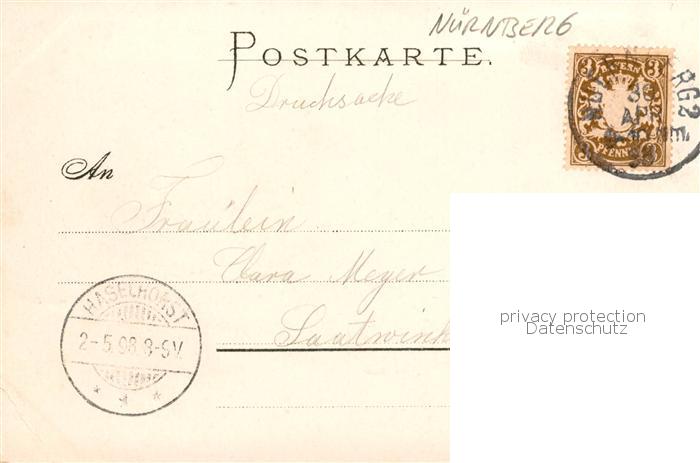 NÜRNBERG
POSTKARTE.
Drucksache
BAYERN
3 3
3 3
PFENNIG
An
Fräulein
Clara Meyer
Saatwink
HASELHORST
2-5.98.8-9V.
* * *
privacy protection
Datenschutz